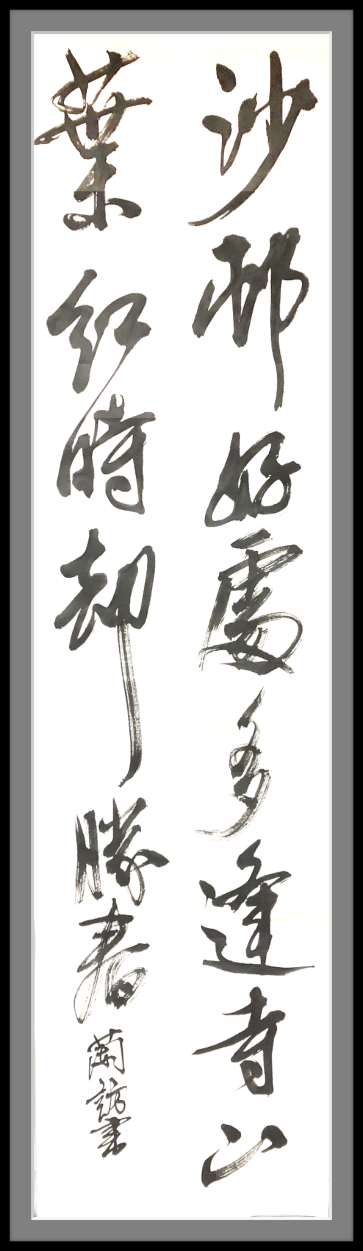 沙邨好處多逢寺山
葉紅時却勝春
蘭諒書